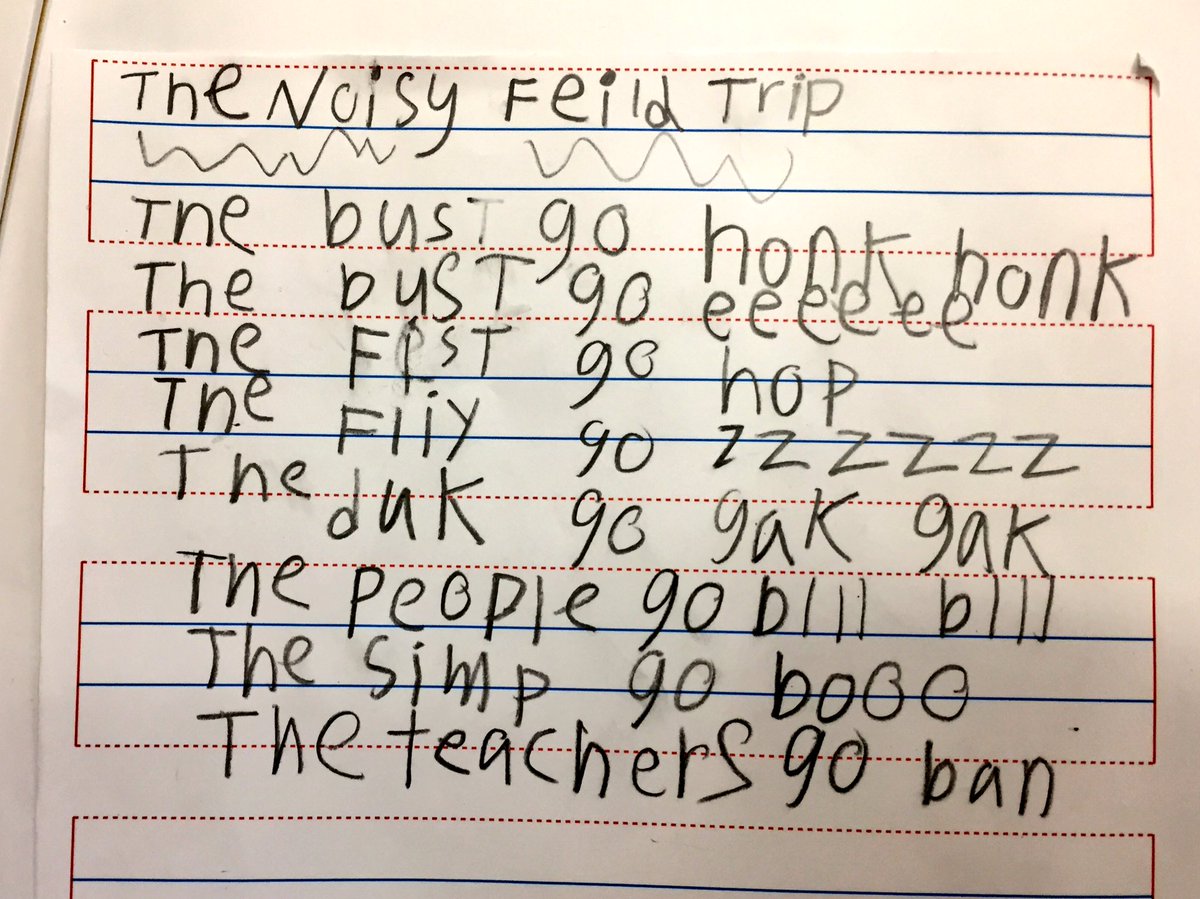 The Noisy Feild Trip
The busT go honk honk
The busT go eeeeeee
The FisT go hop
The Fliy go zzzzzz
The duk go gak gak
The people go blll blll
The simp go booo
The teachers go ban